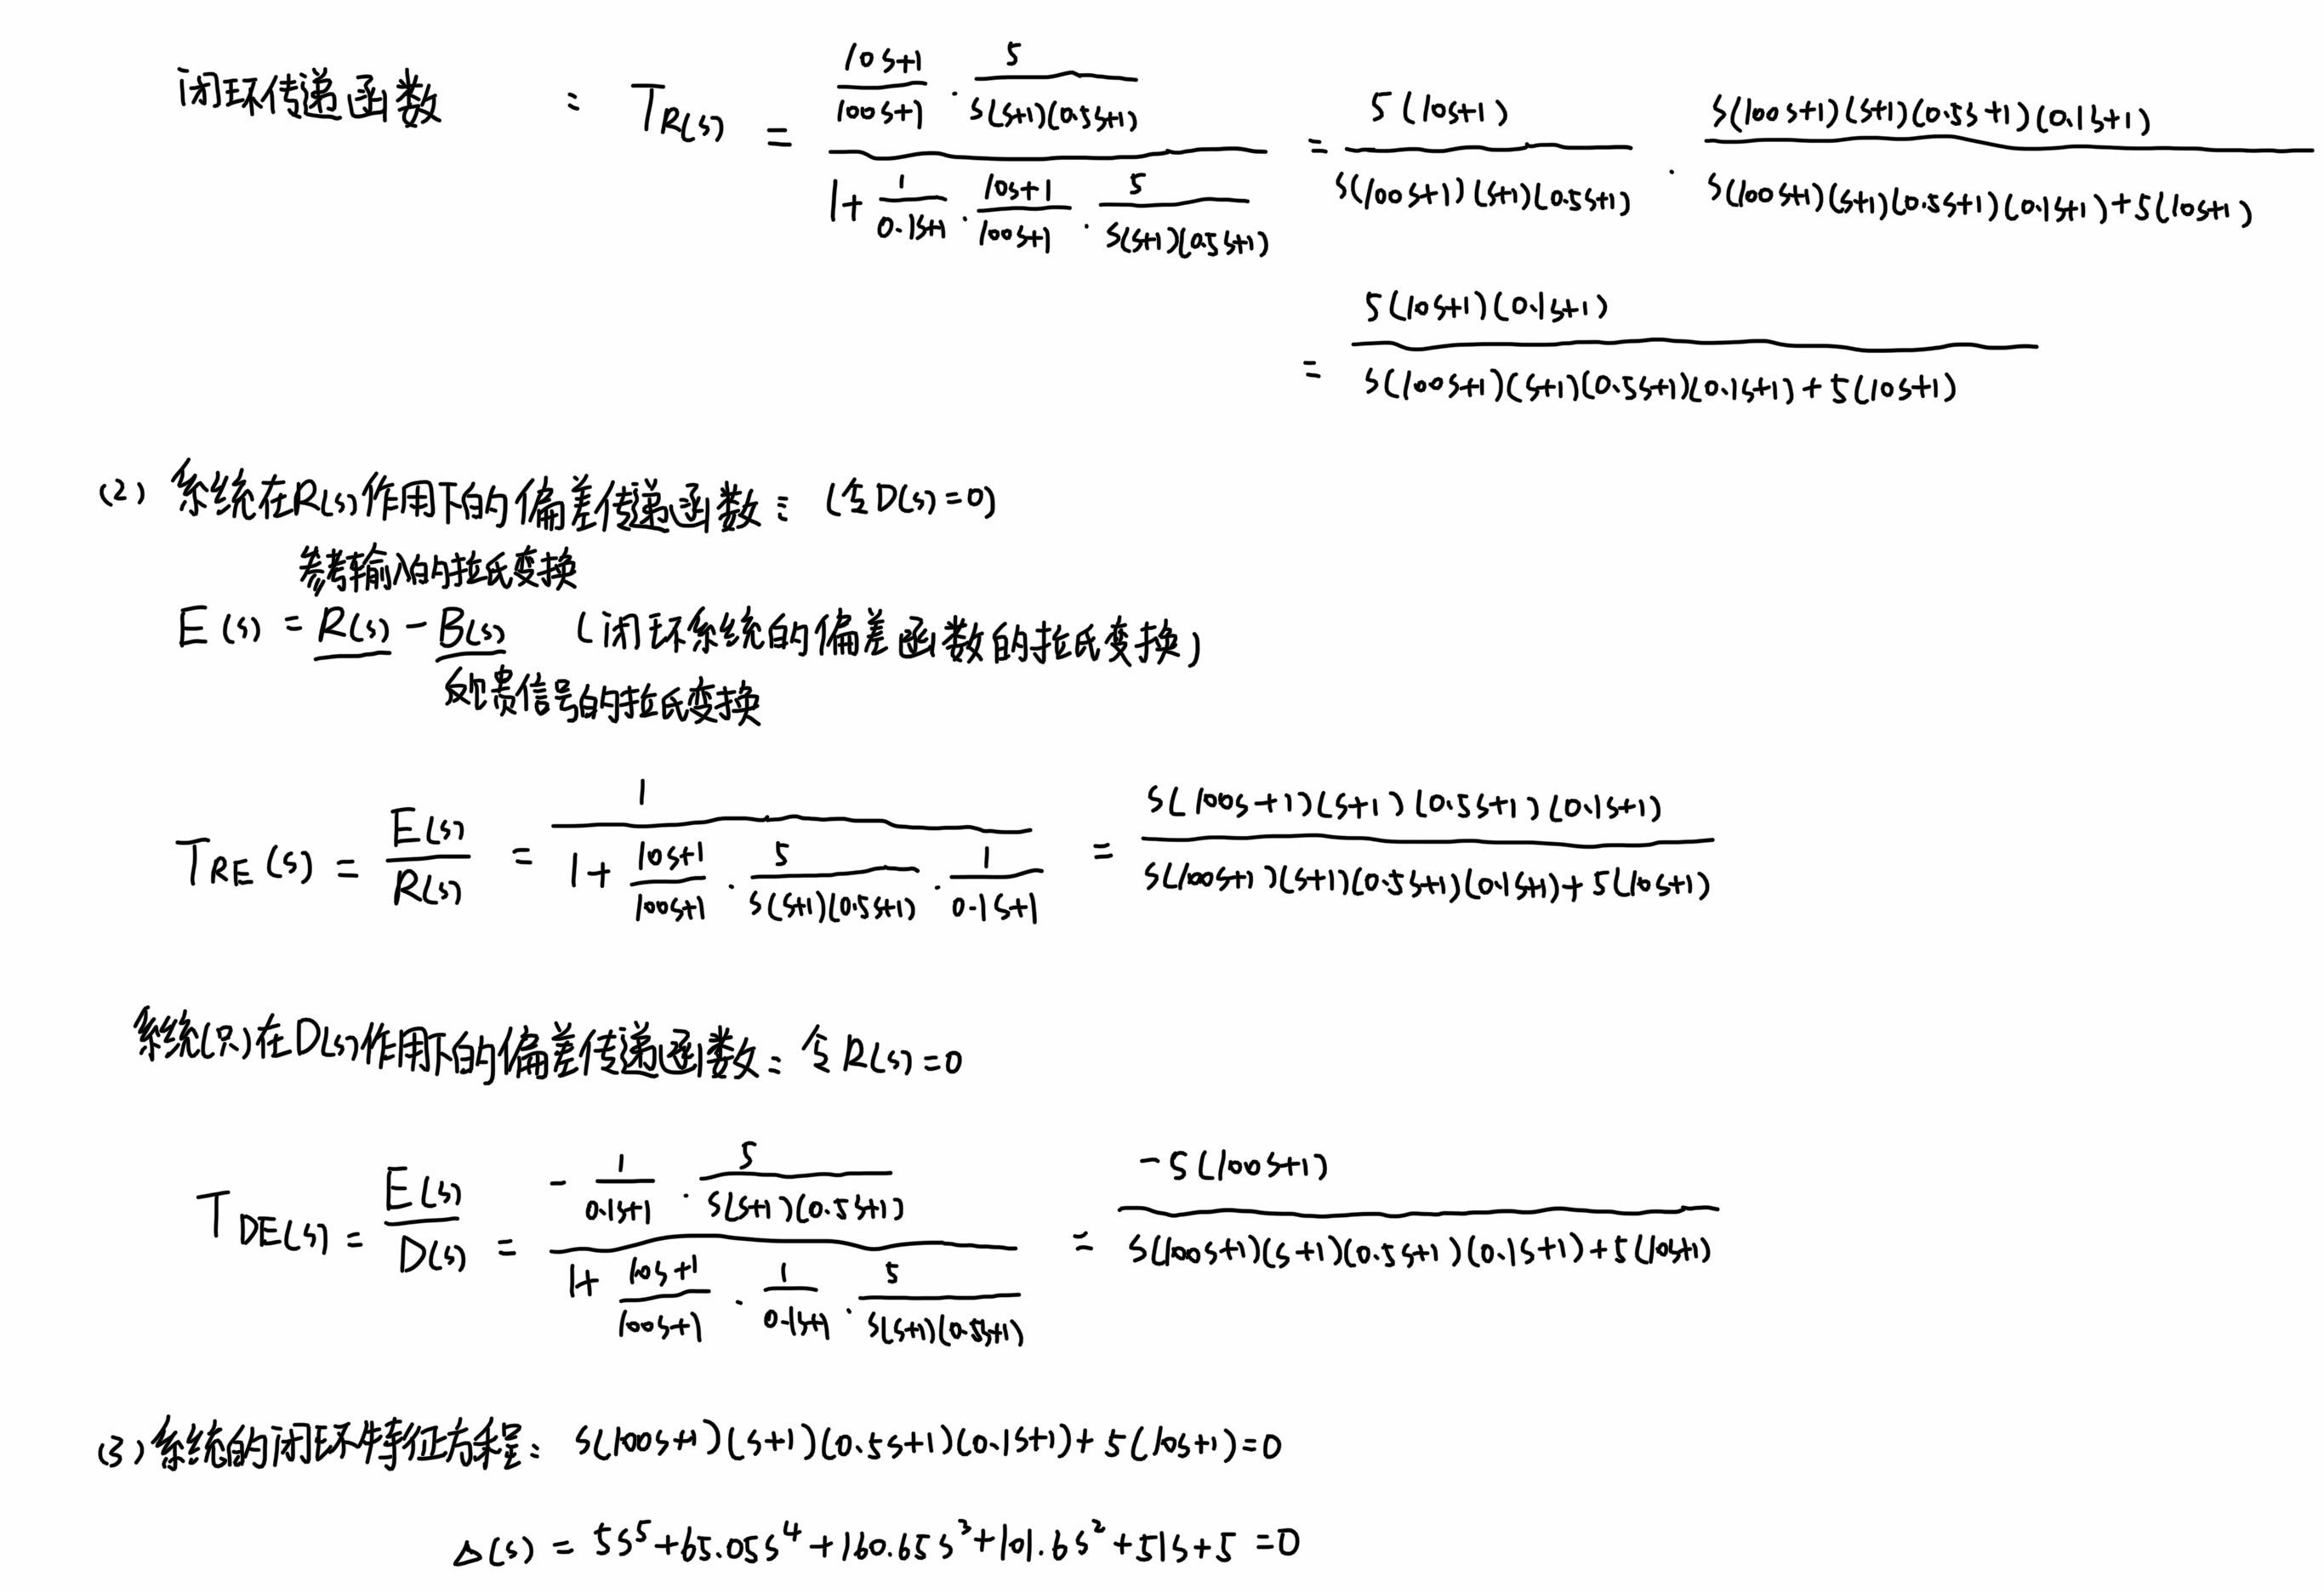 闭环传递函数 : T_R(s) = \frac{\frac{10s+1}{100s+1} \cdot \frac{5}{s(s+1)(0.5s+1)}}{1+\frac{1}{0.1s+1} \cdot \frac{10s+1}{100s+1} \cdot \frac{5}{s(s+1)(0.5s+1)}} = \frac{5(10s+1)}{s(100s+1)(s+1)(0.5s+1)} \cdot \frac{s(100s+1)(s+1)(0.5s+1)(0.1s+1)}{s(100s+1)(s+1)(0.5s+1)(0.1s+1)+5(10s+1)}
= \frac{5(10s+1)(0.1s+1)}{s(100s+1)(s+1)(0.5s+1)(0.1s+1)+5(10s+1)}
(2) 系统在R(s)作用下的偏差传递函数: (令D(s)=0)
参考输入的拉氏变换
E(s) = R(s) - B(s) (闭环系统的偏差函数的拉氏变换)
反馈信号的拉氏变换
T_{RE}(s) = \frac{E(s)}{R(s)} = \frac{1}{1+\frac{10s+1}{100s+1} \cdot \frac{5}{s(s+1)(0.5s+1)} \cdot \frac{1}{0.1s+1}} = \frac{s(100s+1)(s+1)(0.5s+1)(0.1s+1)}{s(100s+1)(s+1)(0.5s+1)(0.1s+1)+5(10s+1)}
系统(只)在D(s)作用下的偏差传递函数: 令R(s)=0
T_{DE}(s) = \frac{E(s)}{D(s)} = \frac{-\frac{1}{0.1s+1} \cdot \frac{5}{s(s+1)(0.5s+1)}}{1+\frac{10s+1}{100s+1} \cdot \frac{1}{0.1s+1} \cdot \frac{5}{s(s+1)(0.5s+1)}} = \frac{-5(100s+1)}{s(100s+1)(s+1)(0.5s+1)(0.1s+1)+5(10s+1)}
(3) 系统的闭环特征方程: s(100s+1)(s+1)(0.5s+1)(0.1s+1)+5(10s+1)=0
Δ(s) = 5s^5+65.05s^4+160.65s^3+101.6s^2+51s+5=0